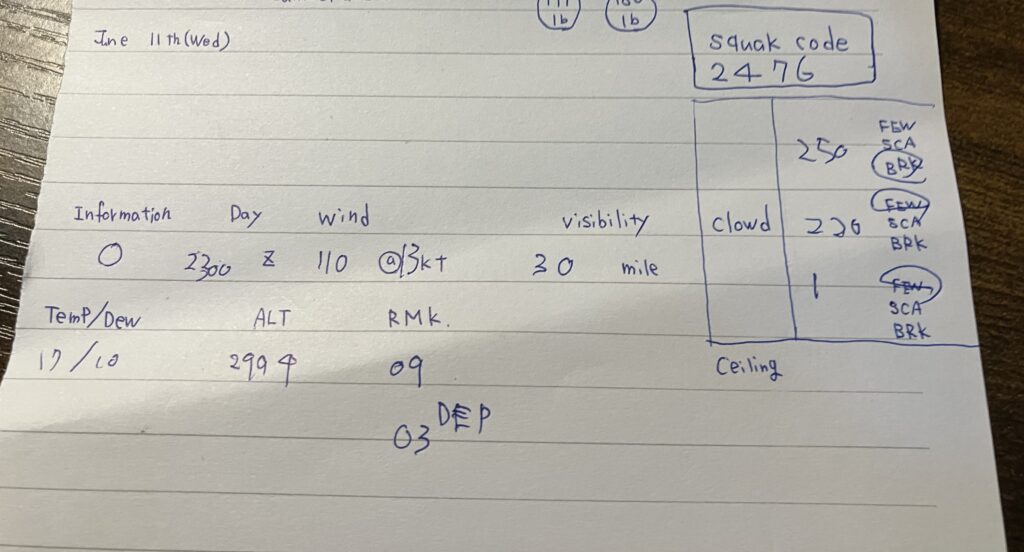 1b 1b
June 11th(Wed)
squak code
2476
FEW
250 SCA
BRK
FEW
clowd 220 SCA
BRK
FEW
1 SCA
BRK
Ceiling
Information Day wind visibility
O 2300 Z 110 @13kt 30 mile
Temp/Dew ALT RMK.
17/10 2994 09
03 DEP